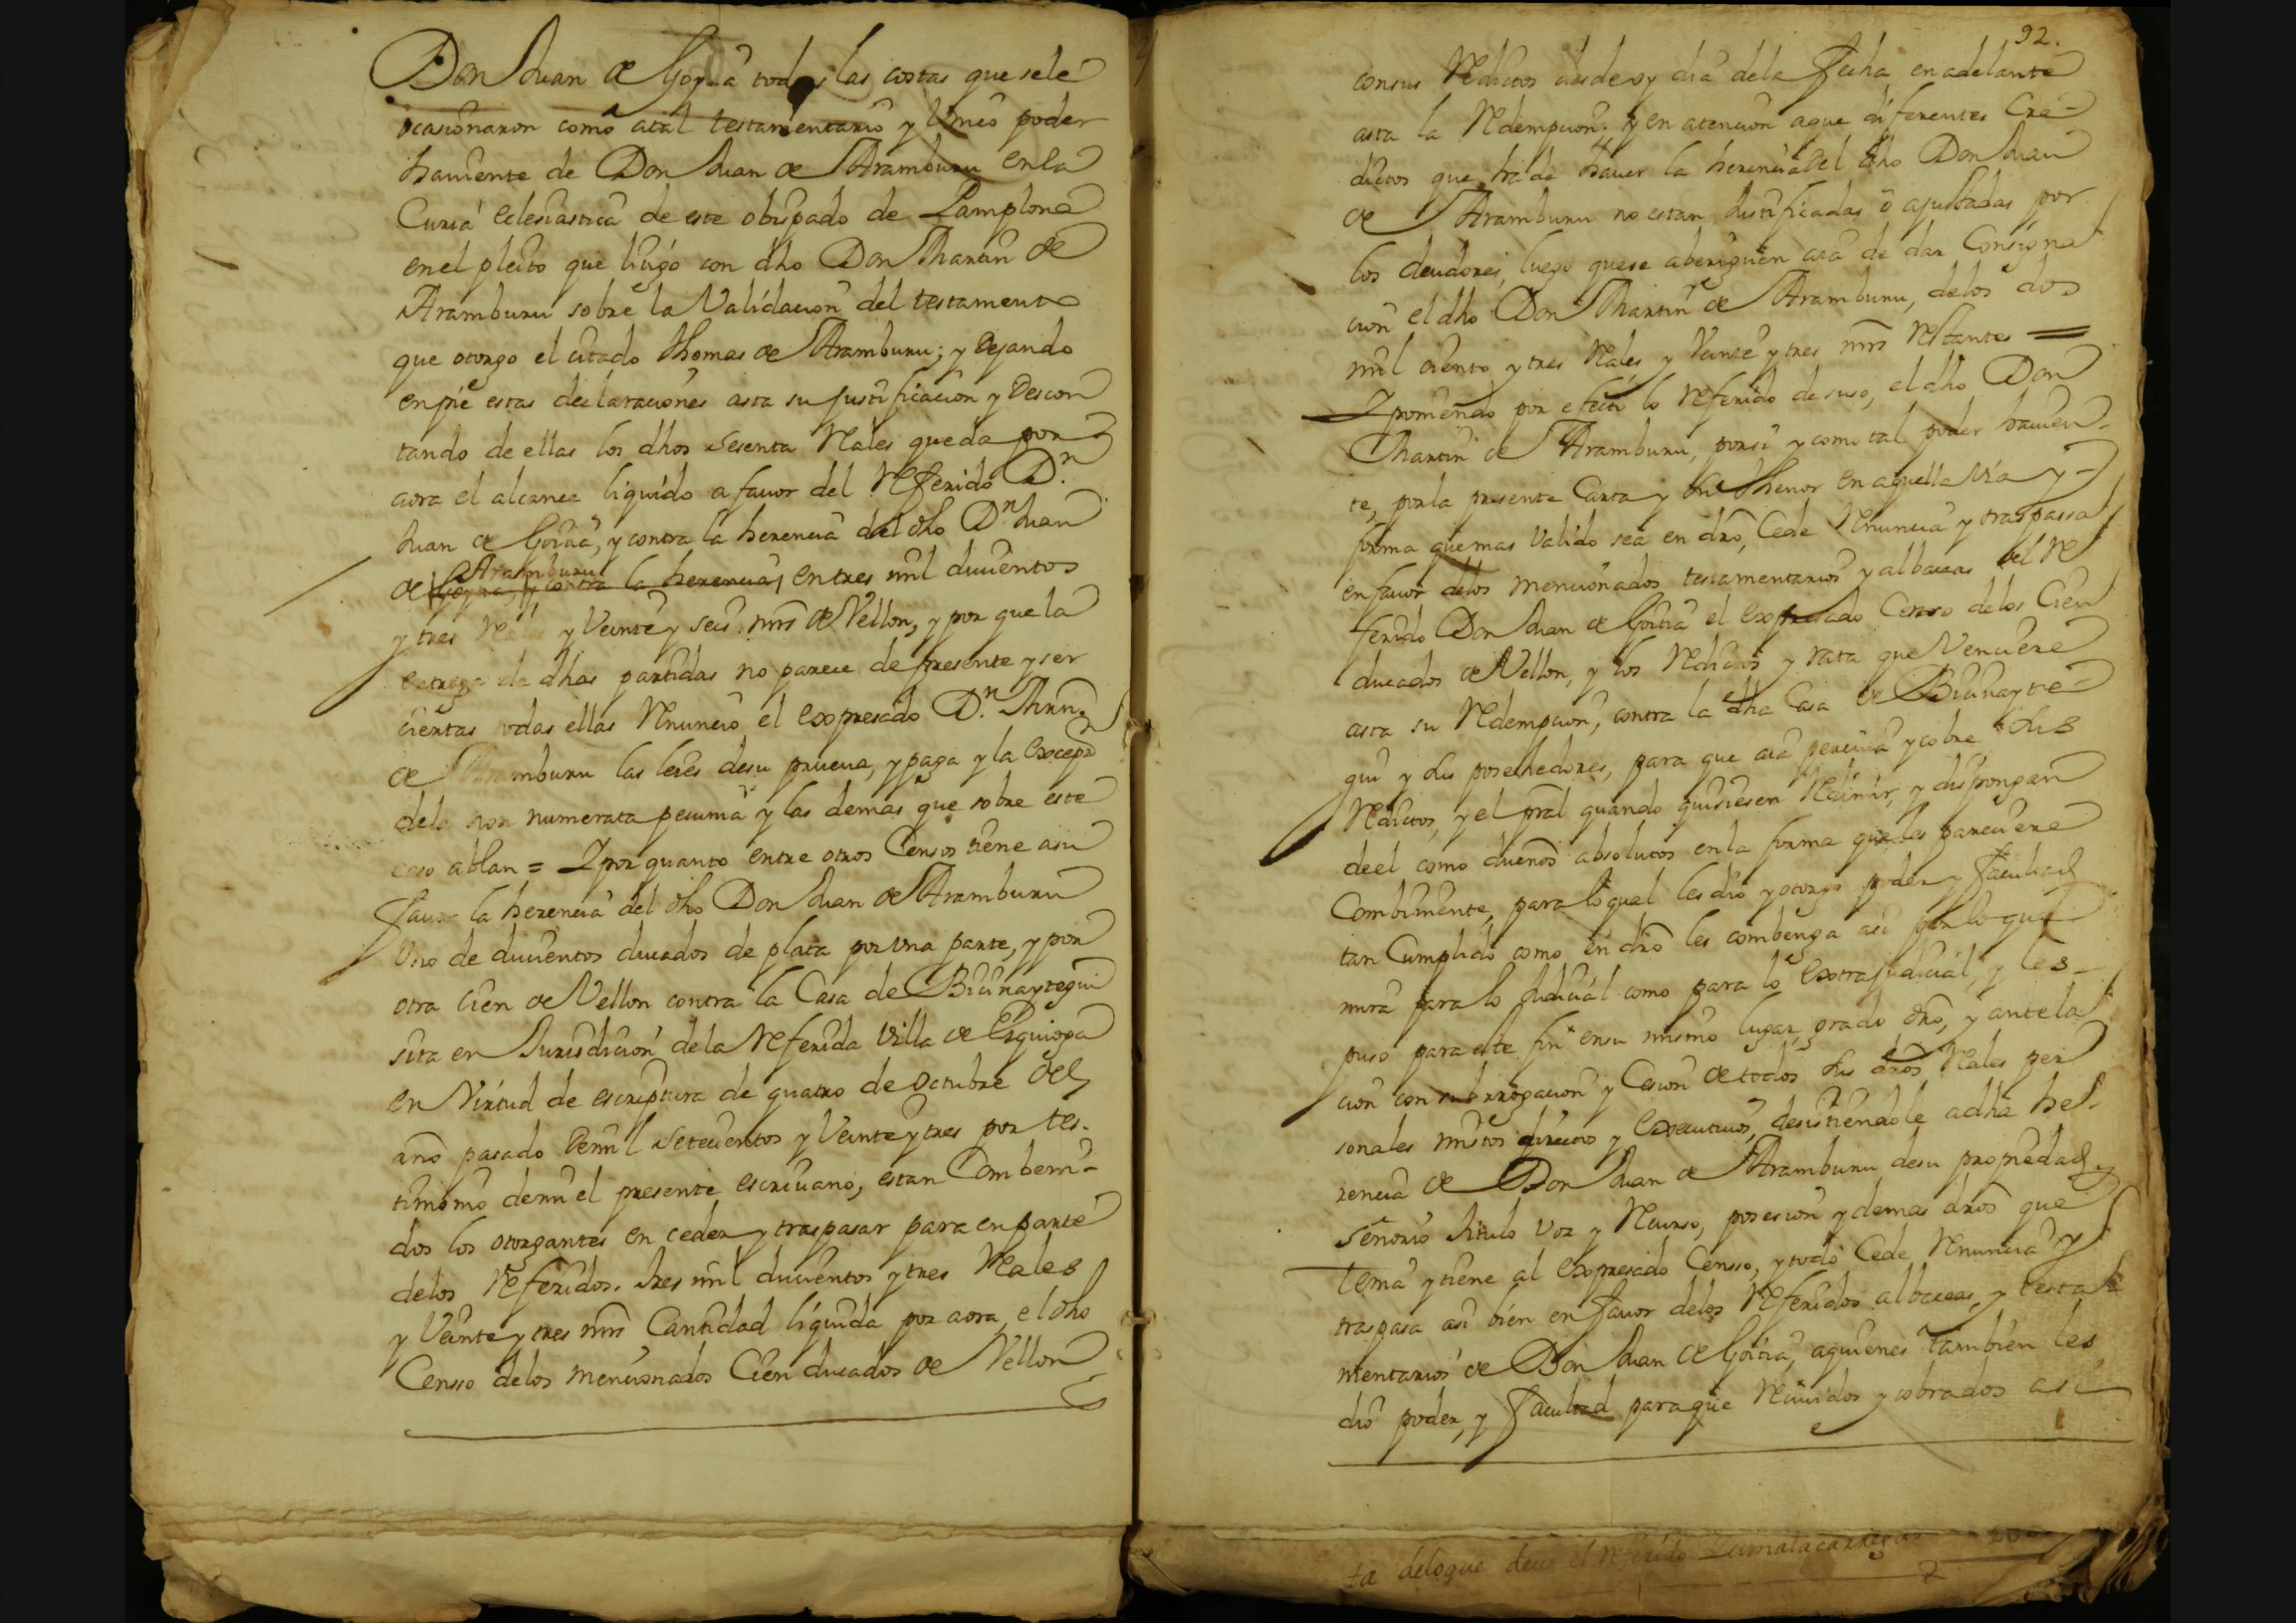 Don Juan de Goytia todas las costas que sele
ocasionaron como atal testamentario y Unico poder
haviente de Don Juan de Aramburu enla
Curia eclesiastica de este obispado de Pamplona
enel pleito que litigó con dho Don Martin de
Aramburu sobre la Validacion del testamento
que otorgo el citado Thomas de Aramburu; y dejando
enpie estas declaraciones asta su justificacion y descon
tando de ellas los dhos sesenta Reales queda por
aora el alcance liquido a favor del Referido Dn
Juan de Goitia, y contra la herencia del dho Dn Juan
Aramburu
de Goytia, y contra la herencia, entres mil ducientos
y tres Reales y Veinte y seis mrs de Vellon, y por que la
entrega de dhas partidas no parece de presente y ser
ciertas todas ellas Renuncio el expresado Dn Mrn
de Aramburu las leies desu prueva, y paga y la excepn
dela non numerata pecunia y las demas que sobre este
caso ablan = Y por quanto entre otros Censos tiene asu
favor la herencia del dho Don Juan de Aramburu
Uno de ducientos ducados de plata por una parte, y por
otra Cien de Vellon contra la Casa de Bicunaytegui
sita en Jurisdicion dela Referida Villa de Ezquioga
en Virtud de escriptura de quatro de octubre del
año pasado demil setecientos y Veinte y tres por tes-
timonio demi el presente escrivano, estan Combeni-
dos los otorgantes en ceder y traspasar para enparte
delos Referidos tres mil ducientos y tres Reales
y Veinte y tres mrs Cantidad liquida por aora, el dho
Censso delos mencionados Cien ducados de Vellon
92.
consus Reditos desde oy dia dela Fecha enadelante
asta la Redempcion; y en atencion aque diferentes Cre-
ditos que ha de haver la herencia del dho Don Juan
de Aramburu no estan Justificadas o ajustadas por
los deudores, luego quese aberiguen ará de dar Consigna
cion el dho Don Martin de Aramburu, delos dos
mil ciento y tres Reales y Veinte y tres mrs Restantes =
Y poniendo por efecto lo Referido desuso, el dho Don
Martin de Aramburu, porsi y como tal poder havien-
te, porla presente Carta y su thenor en aquella Via y
forma que mas Valido sea en dro, Cede Renuncia y traspassa
enfavor delos mencionados testamentarios y albaceas del Re
ferido Don Juan de Goitia el expresado Censo delos Cien
ducados de Vellon, y los Reditos y rata que Venciere
asta su Redempcion, contra la dha Casa de Bicunayte-
gui y sus poseedores, para que aia perciva y cobre sus
Reditos, y el pral quando quisiesen Redimir, y dispongan
deel como dueños absolutos enla forma que les pareciere
Combiniente, para lo qual les dio y otorgo poder y facultad
tan Cumplido como en dro les combenga asi por lo que
mira para lo Judicial como para lo extrajudicial, y les
puso para este fin ensu mismo lugar, grado dro, y antela
cion con subrrogacion y Cesion de todos sus dros Reales per
sonales mistos directos y executivos, desistiendole adha he-
rencia de Don Juan de Aramburu desu propriedad, y
señorio titulo voz y Recurso, posesion y demas dros que
tenia y tiene al expresado Censso, y todo Cede Renuncia y
traspasa asi bien en favor delos Referidos albaceas, y testa-
mentarios de Don Juan de Goitia, aquienes tambien les
dio poder, y facultad paraque Recividos y cobrados asi
ta deloque deve el Referido Zumalacarregui